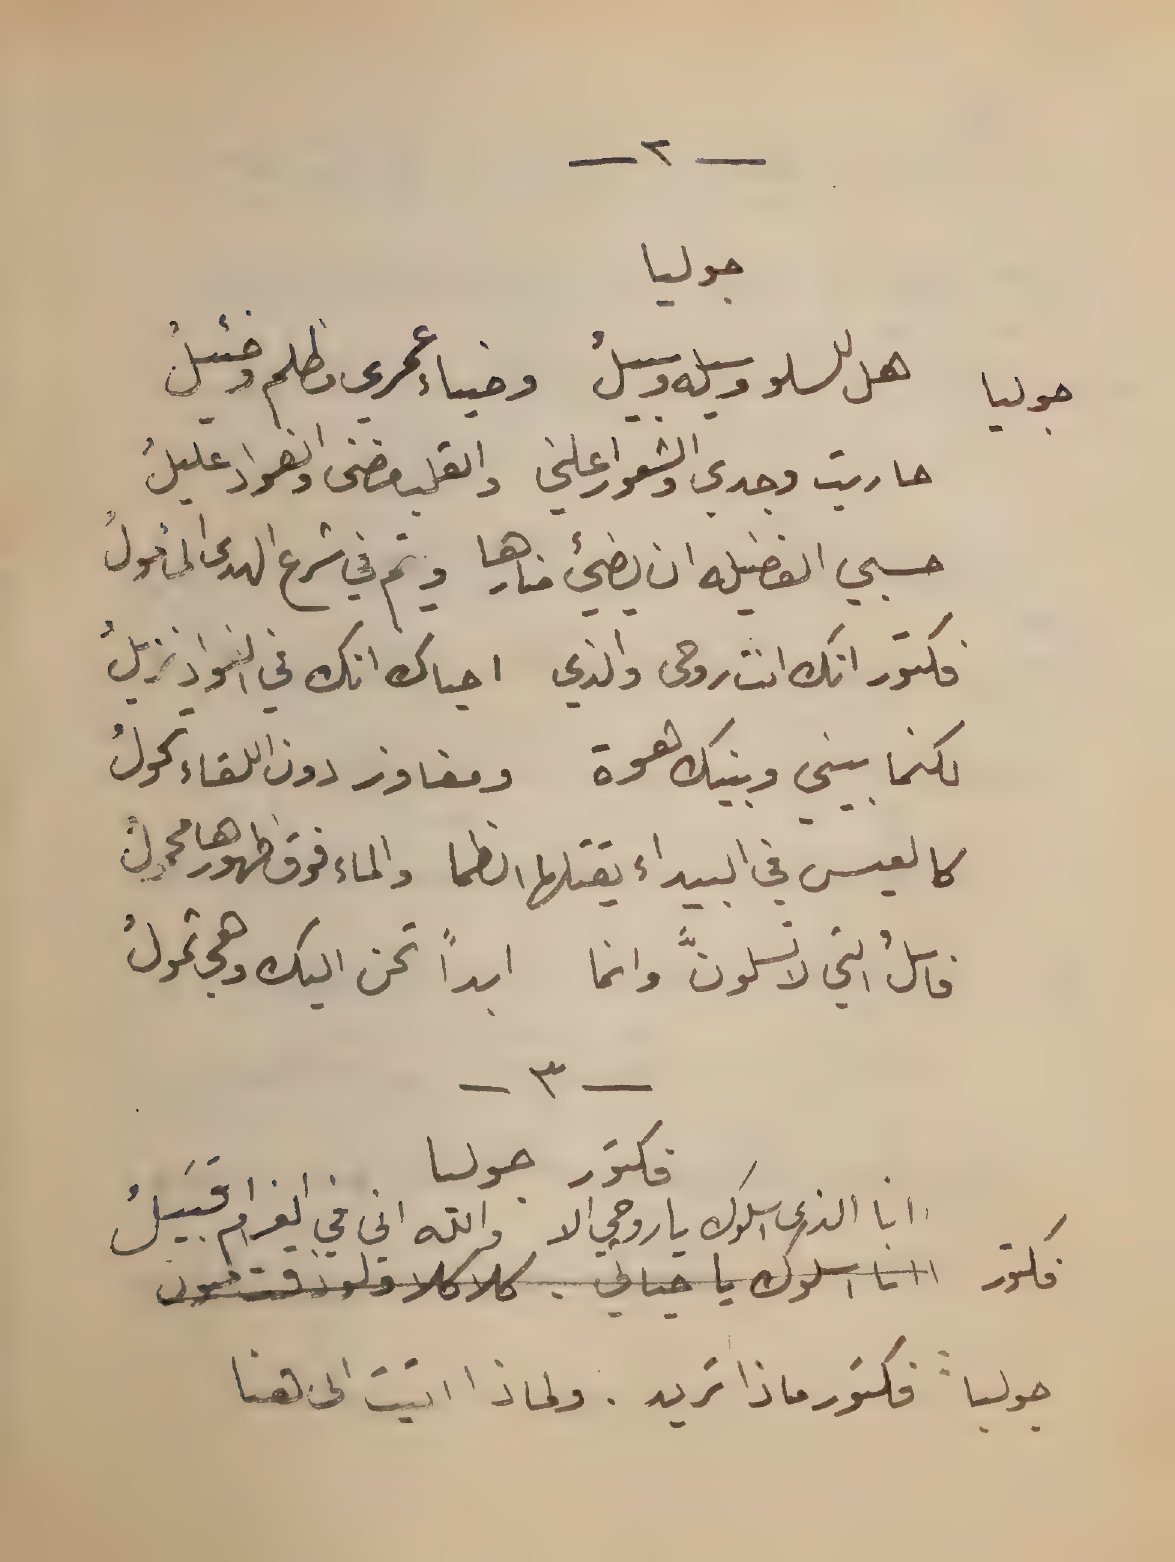 — ٢ —
جوليا
جوليا هل للسلو وسيله وسبيلُ وضياء عمري مظلم وضئيلُ
حاربت وجدي والشعور اعلني والقلب مضنى والفواد عليلُ
حسبي الفضيله ان يضيئ منارها ويتم في شرع الهدى
فكتور انك انت روحي والذي احياك انك في الفواد نزيلُ
لكنما بيني وبينك هوة ومفاوز دون اللقاء تحولُ
كالعيس في البيداء يقتلها الظما والماء فوق ظهورها محمولُ
فاسلُ التي لا تسلونَّ وانما ابداً تحن اليك وهي تحولُ
— ٣ —
فكتور جوليا
اانا الذي اسلوك يا روحي الا والله اني في الغرام قبيلُ
فكتور اانا اسلوك يا حياتي . كلا كلا ولو ذقت
جوليا : فكتور ماذا تريد . ولماذا اتيت الى هنا